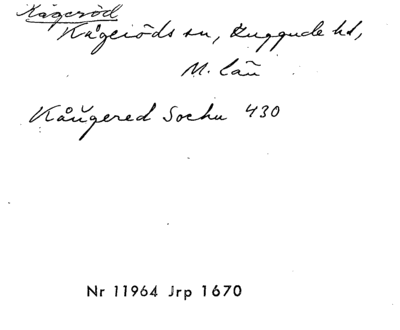 Kågeröd
Kågeröds sn, Luggude hd,
M. län
Kåugered Sochn 430
Nr 11964 Jrp 1670